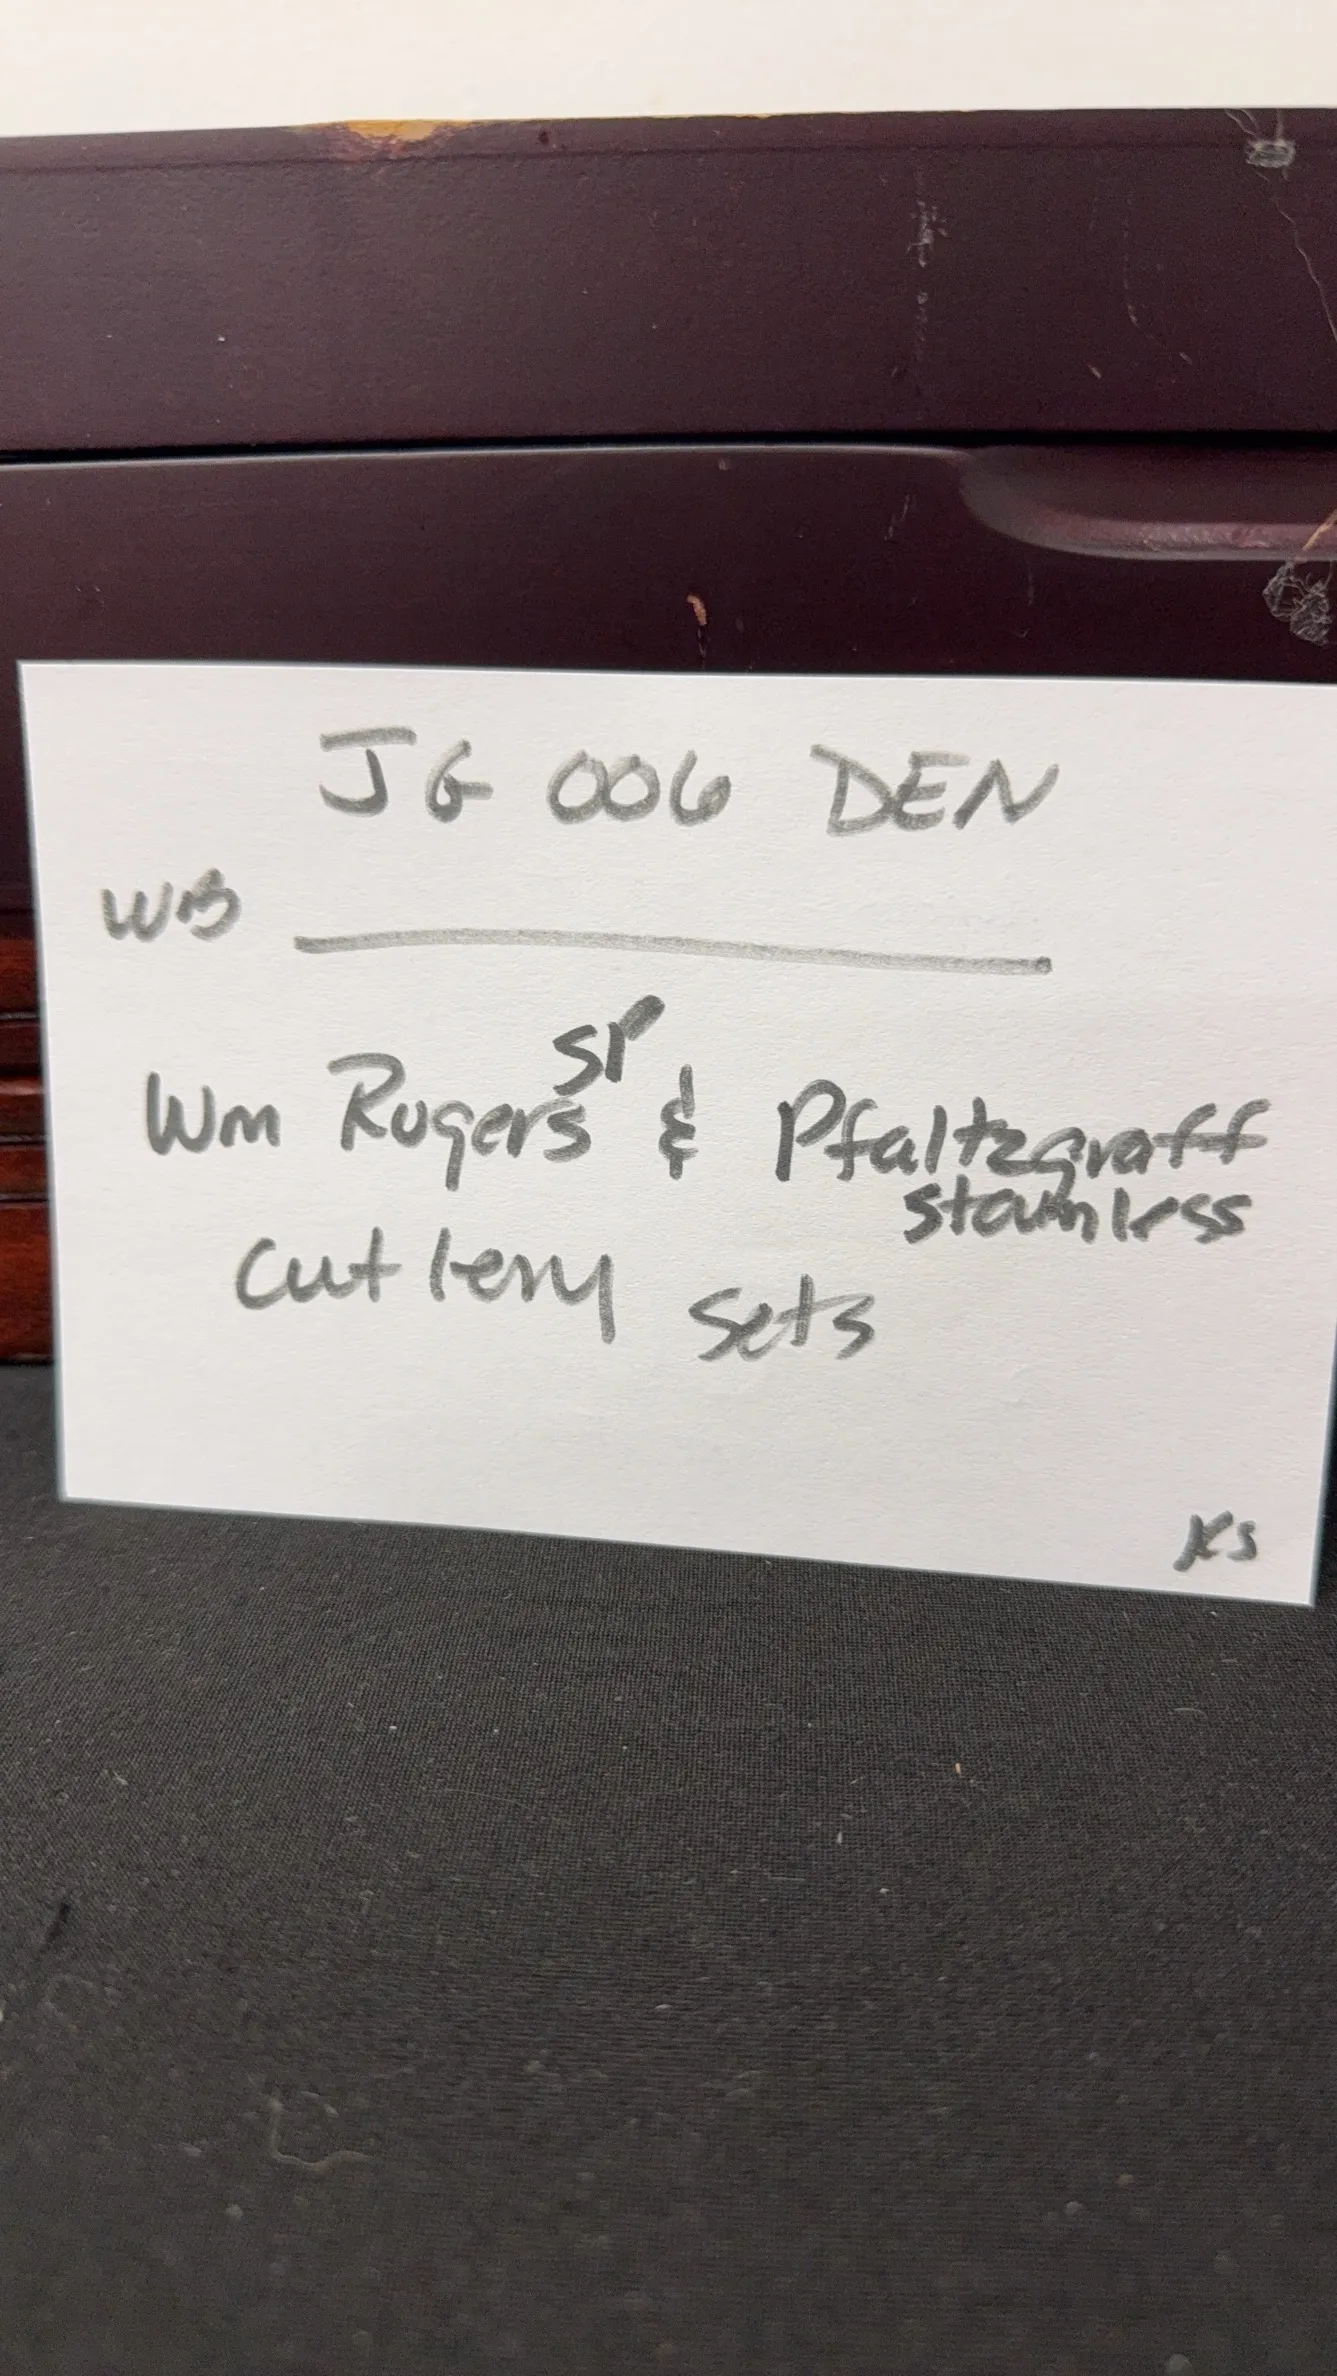 JG 006 DEN
WB
Wm Rogers SP & Pfaltzgraff
stainless
cutlery sets
KS